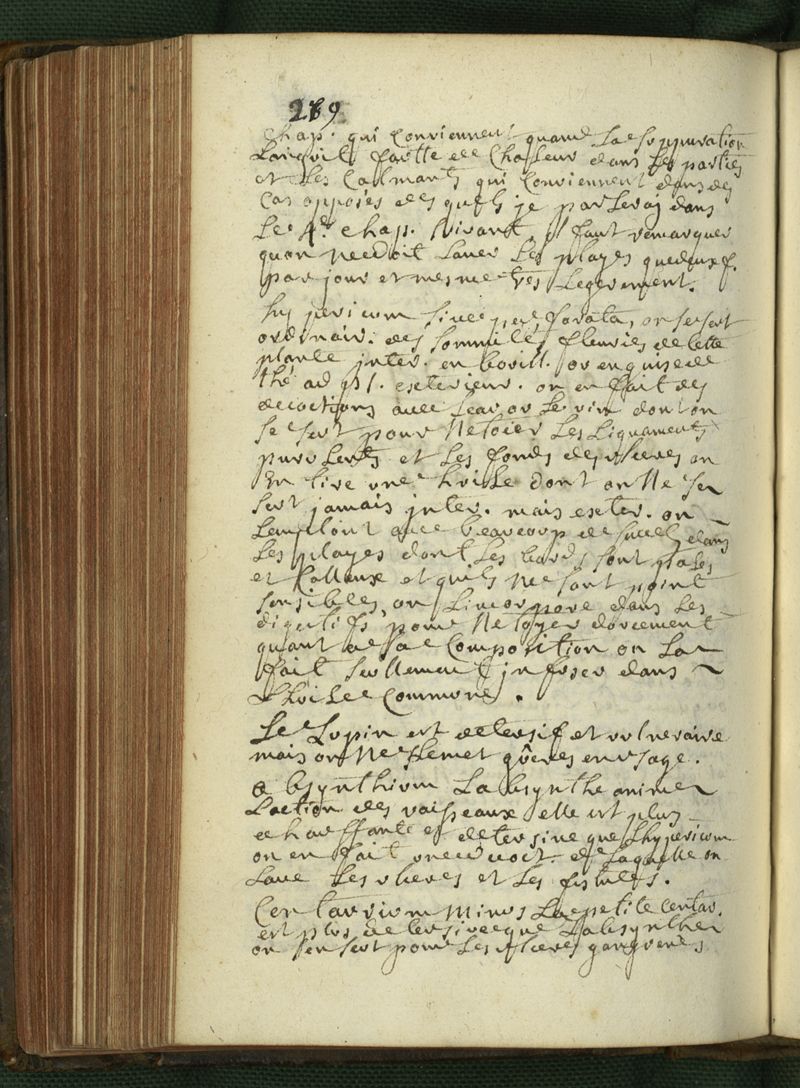 289
chap. qui conviennent quand la suppuration
languit faute de chaleur dans les parties
et les calmants qui conviennent dans des
cas opposés des quels je parlerai dans
le 4e. chap. suivant, il faut remarquer
quon ne doit laver les playes que deux f.
par jour et mesme tres legerement.
hypericum sive perforata, on se sert
ordinair. des sommités fleuries de cette
plante inter. en bouill. ou en guise de
thé ad p. 1. exterieur. on en fait des
decoctions avec leau ou le vin dont on
se sert pour netoier les
purulents et les fonds des ulceres on
en tire une huile dont on ne se
sert jamais inter. mais exter. on
lemploit avec beaucoup de succes dans
les playes dont les bords sont pales
et calleux et quils ne sont point
sensibles, on lincorpore dans les
digestifs pour netoyer doucement
quant a sa composition on la
fait seullement infuser dans
lhuile commune.
Le Lupin est detersif et vulneraire
mais on ne le met guêres en usage.
absynthium Labsynthe anime
laction des vaisseaux elle est plus
echauffante et detersive que lhypericum
on en fait une decoct. de laquelle on
lave les ulceres et les fistules.
Centaurium minus La petite centau.
est plus detersive que labsynthe
on sen sert pour les ulceres gangrenés